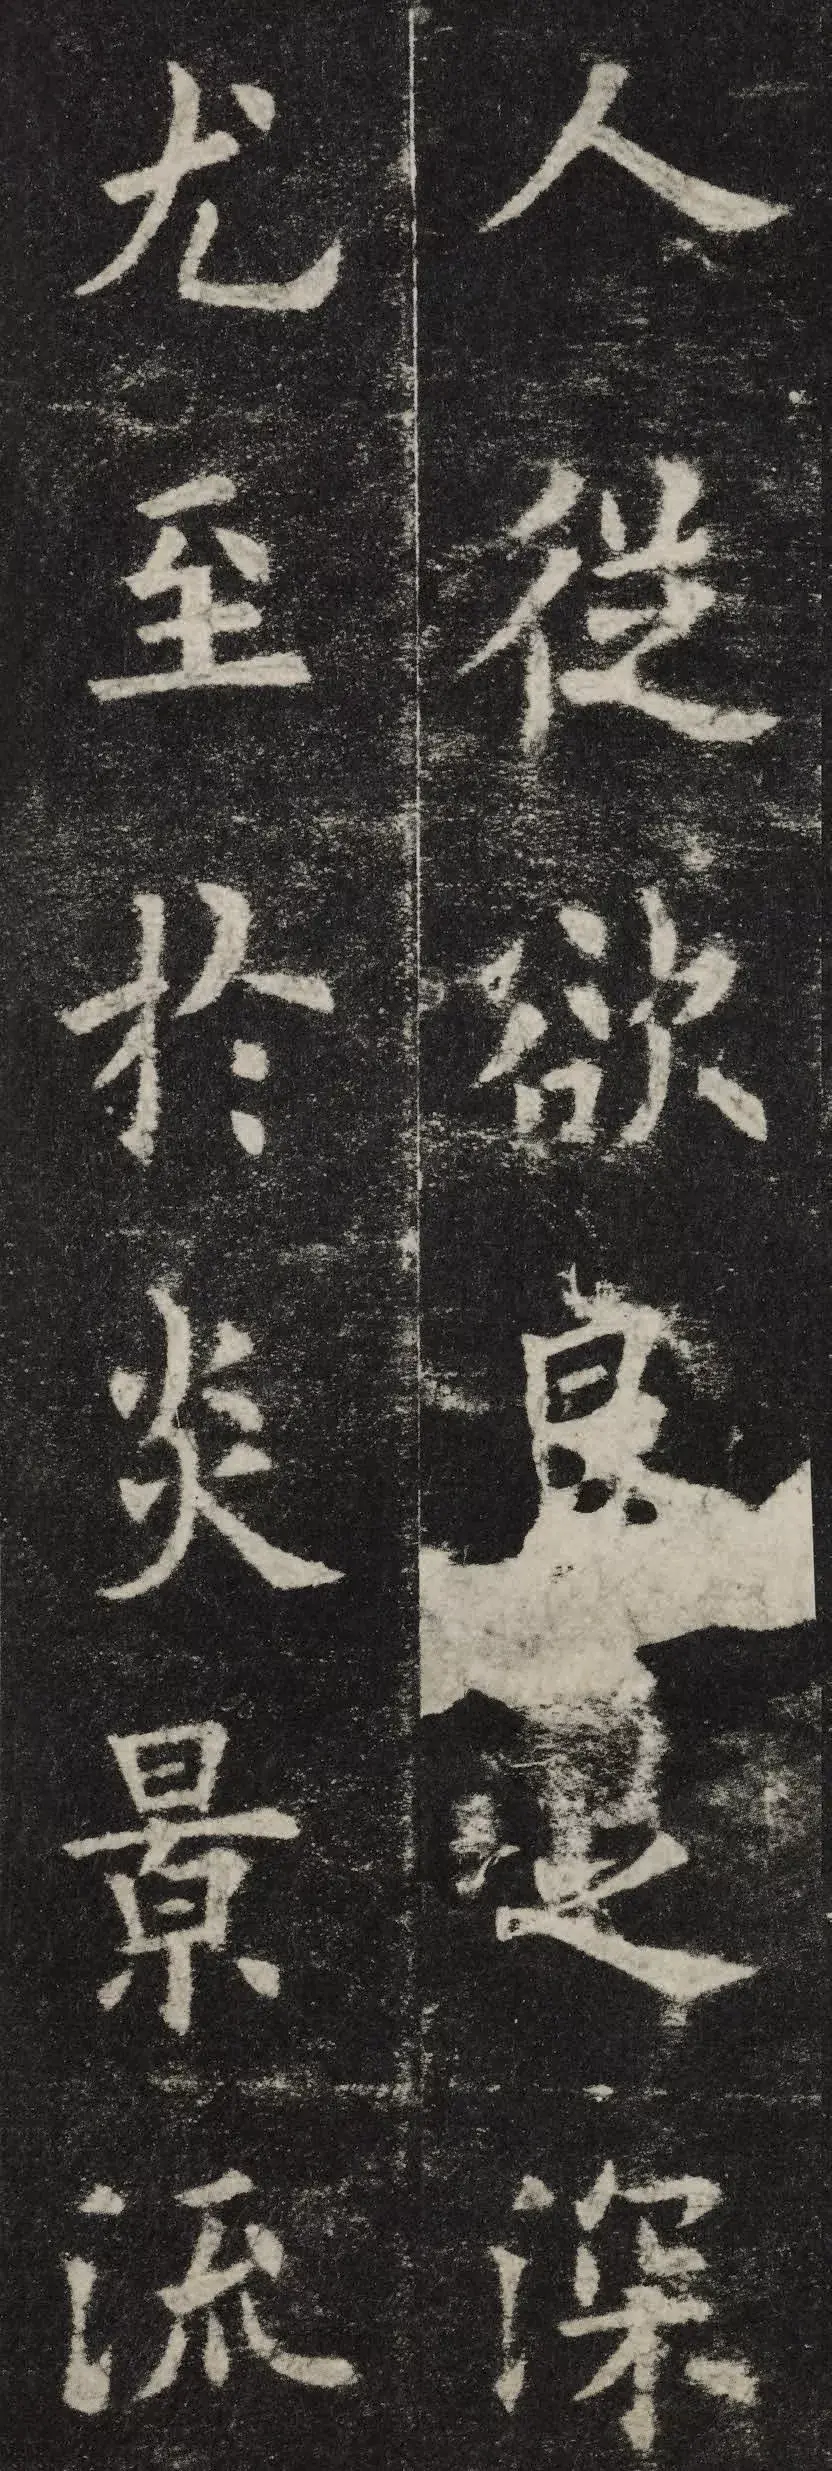 人從欲良足深
尤至於炎景流